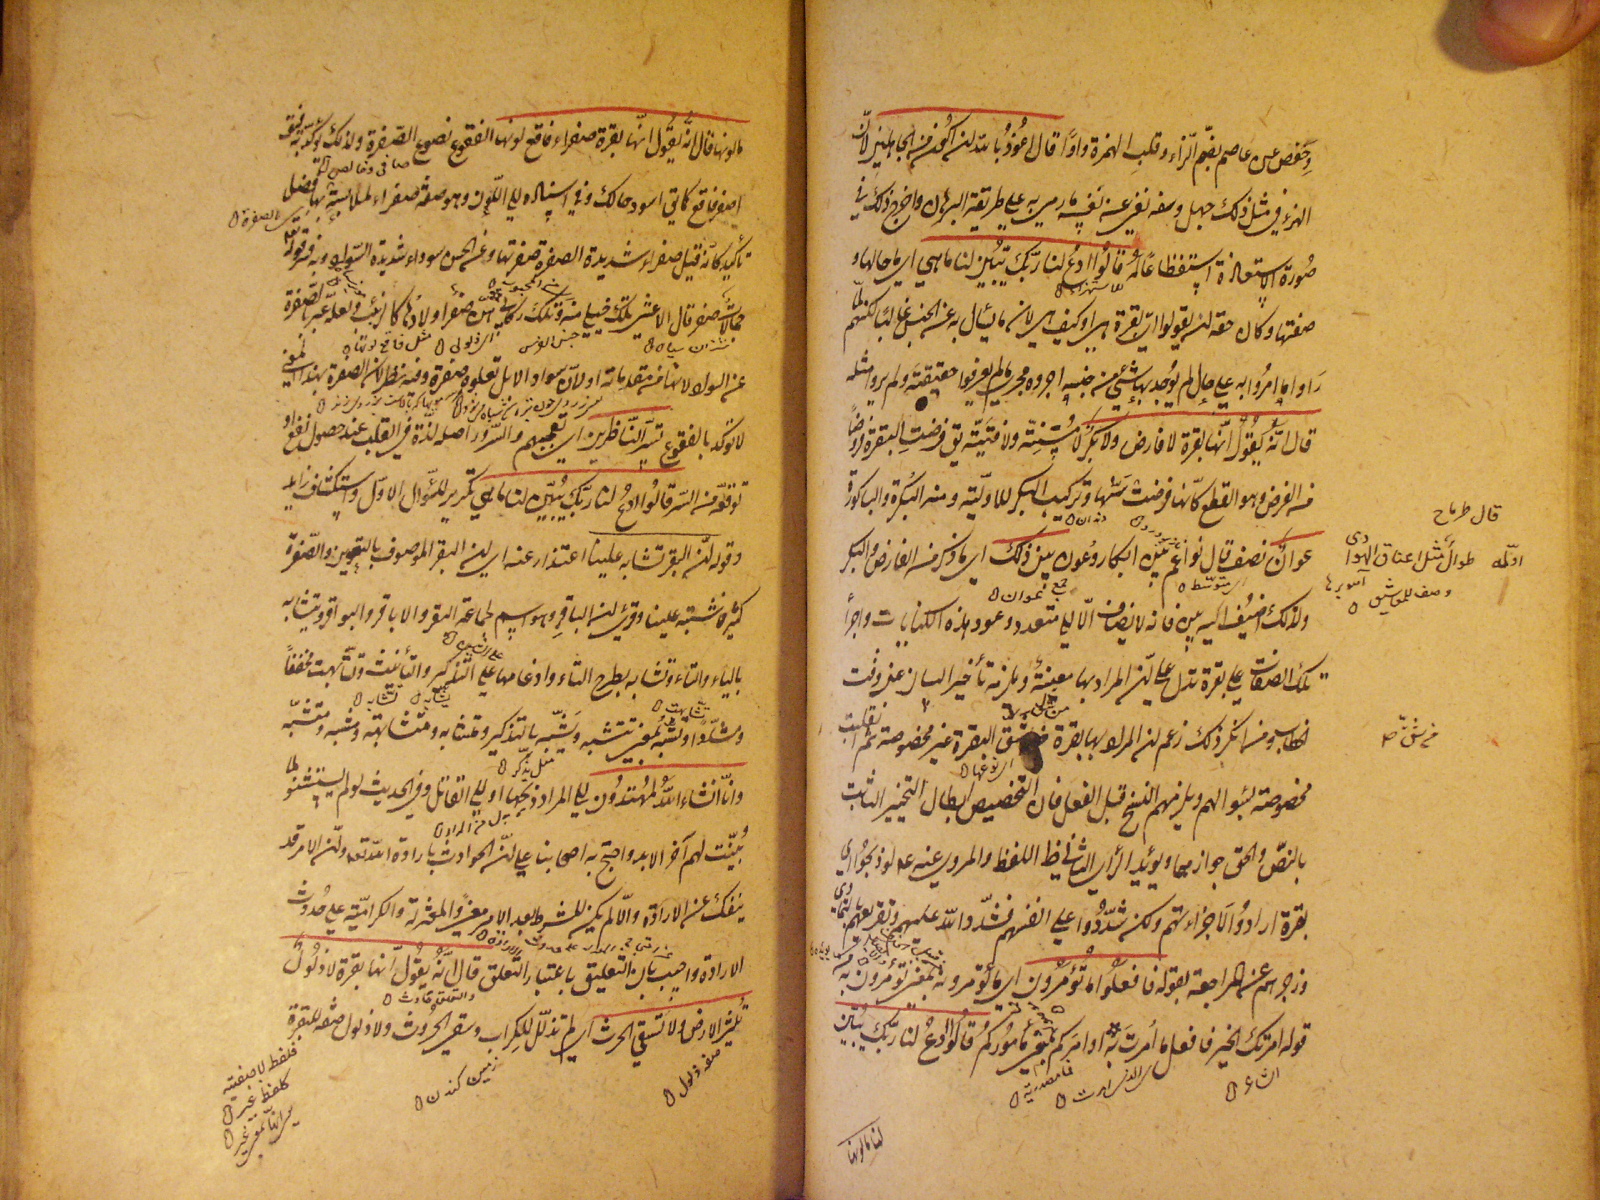 وحفص عن عاصم بضم الزاء وقلب الهمزة واوا قال اعوذ بالله ان اكون من الجاهلين لان
الهزء في مثل ذلك جهل وسفه نفى عن نفسه ما رمي به على طريقة البرهان واخرج ذلك في
صورة الاستعاذة استفظاعا له قالوا ادع لنا ربك يبين لنا ما هي اي ما حالها و
صفتها وكان حقه ان يقولوا اي بقرة هي او كيف هي لان ما يسأل به عن الجنس غالبا لكنهم لما
راوا ما امروا به على حال لم يوجد بها شئ من جنسه اجروه مجرى ما لم يعرفوا حقيقته ولم يروا مثله
قال انه يقول انها بقرة لا فارض ولا بكر لا مسنة ولا فتية يق فرضت البقرة فروضا
من الفرض وهو القطع كانها فرضت سنها وتركيب البكر للاولية ومنه البكرة والباكورة
عوان نصف قال نواعم بين ابكار وعون بين ذلك اي ما ذكر من الفارض والبكر
ولذلك اضيف اليه بين فانه لا يضاف الا الى متعدد وعود هذه الكنايات واجراء
تلك الصفات على بقرة تدل على ان المراد بها معينة ويلزمه تأخير البيان عن وقت
الخطاب ومن انكر ذلك زعم ان المراد بها بقرة من شق البقرة غير مخصوصة ثم انقلبت
مخصوصة بسؤالهم ويلزمهم النسخ قبل الفعل فان التخصيص ابطال التخيير الثابت
بالنص والحق جوازهما ويؤيد الرأي الثاني ظ اللفظ والمروي عنه عم لو ذبحوا اي
بقرة ارادوا لاجزاءتهم ولكن شددوا على انفسهم فشدد الله عليهم وتقريعهم بالتمادي
وزجرهم عن المراجعة بقوله فافعلوا ما تؤمرون اي ما تؤمرونه بمعنى تؤمرون به من
قوله امرتك الخير فافعل ما امرت به او امركم بمعنى مأموركم قالوا ادع لنا ربك يبين
لنا ما لونها
قال طرماح
طوال مثل اعناق الهوادي
اوله
من شق ص
ما لونها قال انه يقول انها بقرة صفراء فاقع لونها الفقوع نصوع الصفرة ولذلك تؤكد به فيق
اصفر فاقع كما يق اسود حالك وفي اسناده الى اللون وهو صفة صفراء لملابسته بها فضل
تأكيد كانه قيل صفراء شديدة الصفرة صفرتها وعن الحسن سوداء شديدة السواد وبه فسر قوله تع
جمالات صفر قال الاعشى تلك خيلي منه وتلك ركابي هن صفر اولادها كالزبيب ولعله عبر بالصفرة
عن السواد لانها من مقدماته او لان سواد الابل تعلوه صفرة وفيه نظر لان الصفرة بهذا المعنى
لا تؤكد بالفقوع تسر الناظرين اي تعجبهم والسرور اصله لذة في القلب عند حصول نفع او
توقعه من السر قالوا ادع لنا ربك يبين لنا ما هي تكرير للسؤال الاول واستكشاف زايد
وقوله ان البقر تشابه علينا اعتذار عنه اي ان البقر الموصوف بالتعوين والصفرة
كثير فاشتبه علينا وقرئ ان الباقر وهو اسم لجماعة البقر والاباقر والبواقر ويتشابه
بالياء والتاء وتشابه بطرح التاء وادغامها على التذكير والتأنيث وتشابهت مخففا
ومشددا وتشبه بمعنى تتشبه ويشبه بالتذكير ومتشابه ومتشابهة ومشبه ومتشبه
وانا انشاء الله لمهتدون الى المراد ذبحها او الى القاتل وفي الحديث لو لم يستثنوا لما
بينت لهم آخر الابد واحتج به اصحابنا على ان الحوادث بارادة الله تعه وان الامر قد
ينفك عن الارادة والا لم يكن للشرط بعد الامر معنى والمعتزلة والكرامية على حدوث
الارادة واجيب بان التعليق باعتبار التعلق قال انه يقول انها بقرة لا ذلول
تثير الارض ولا تسقي الحرث اي لم تذلل للكراب وسقي الحروث ولا ذلول صفة لبقرة
صفة ذلول
زمين كندن